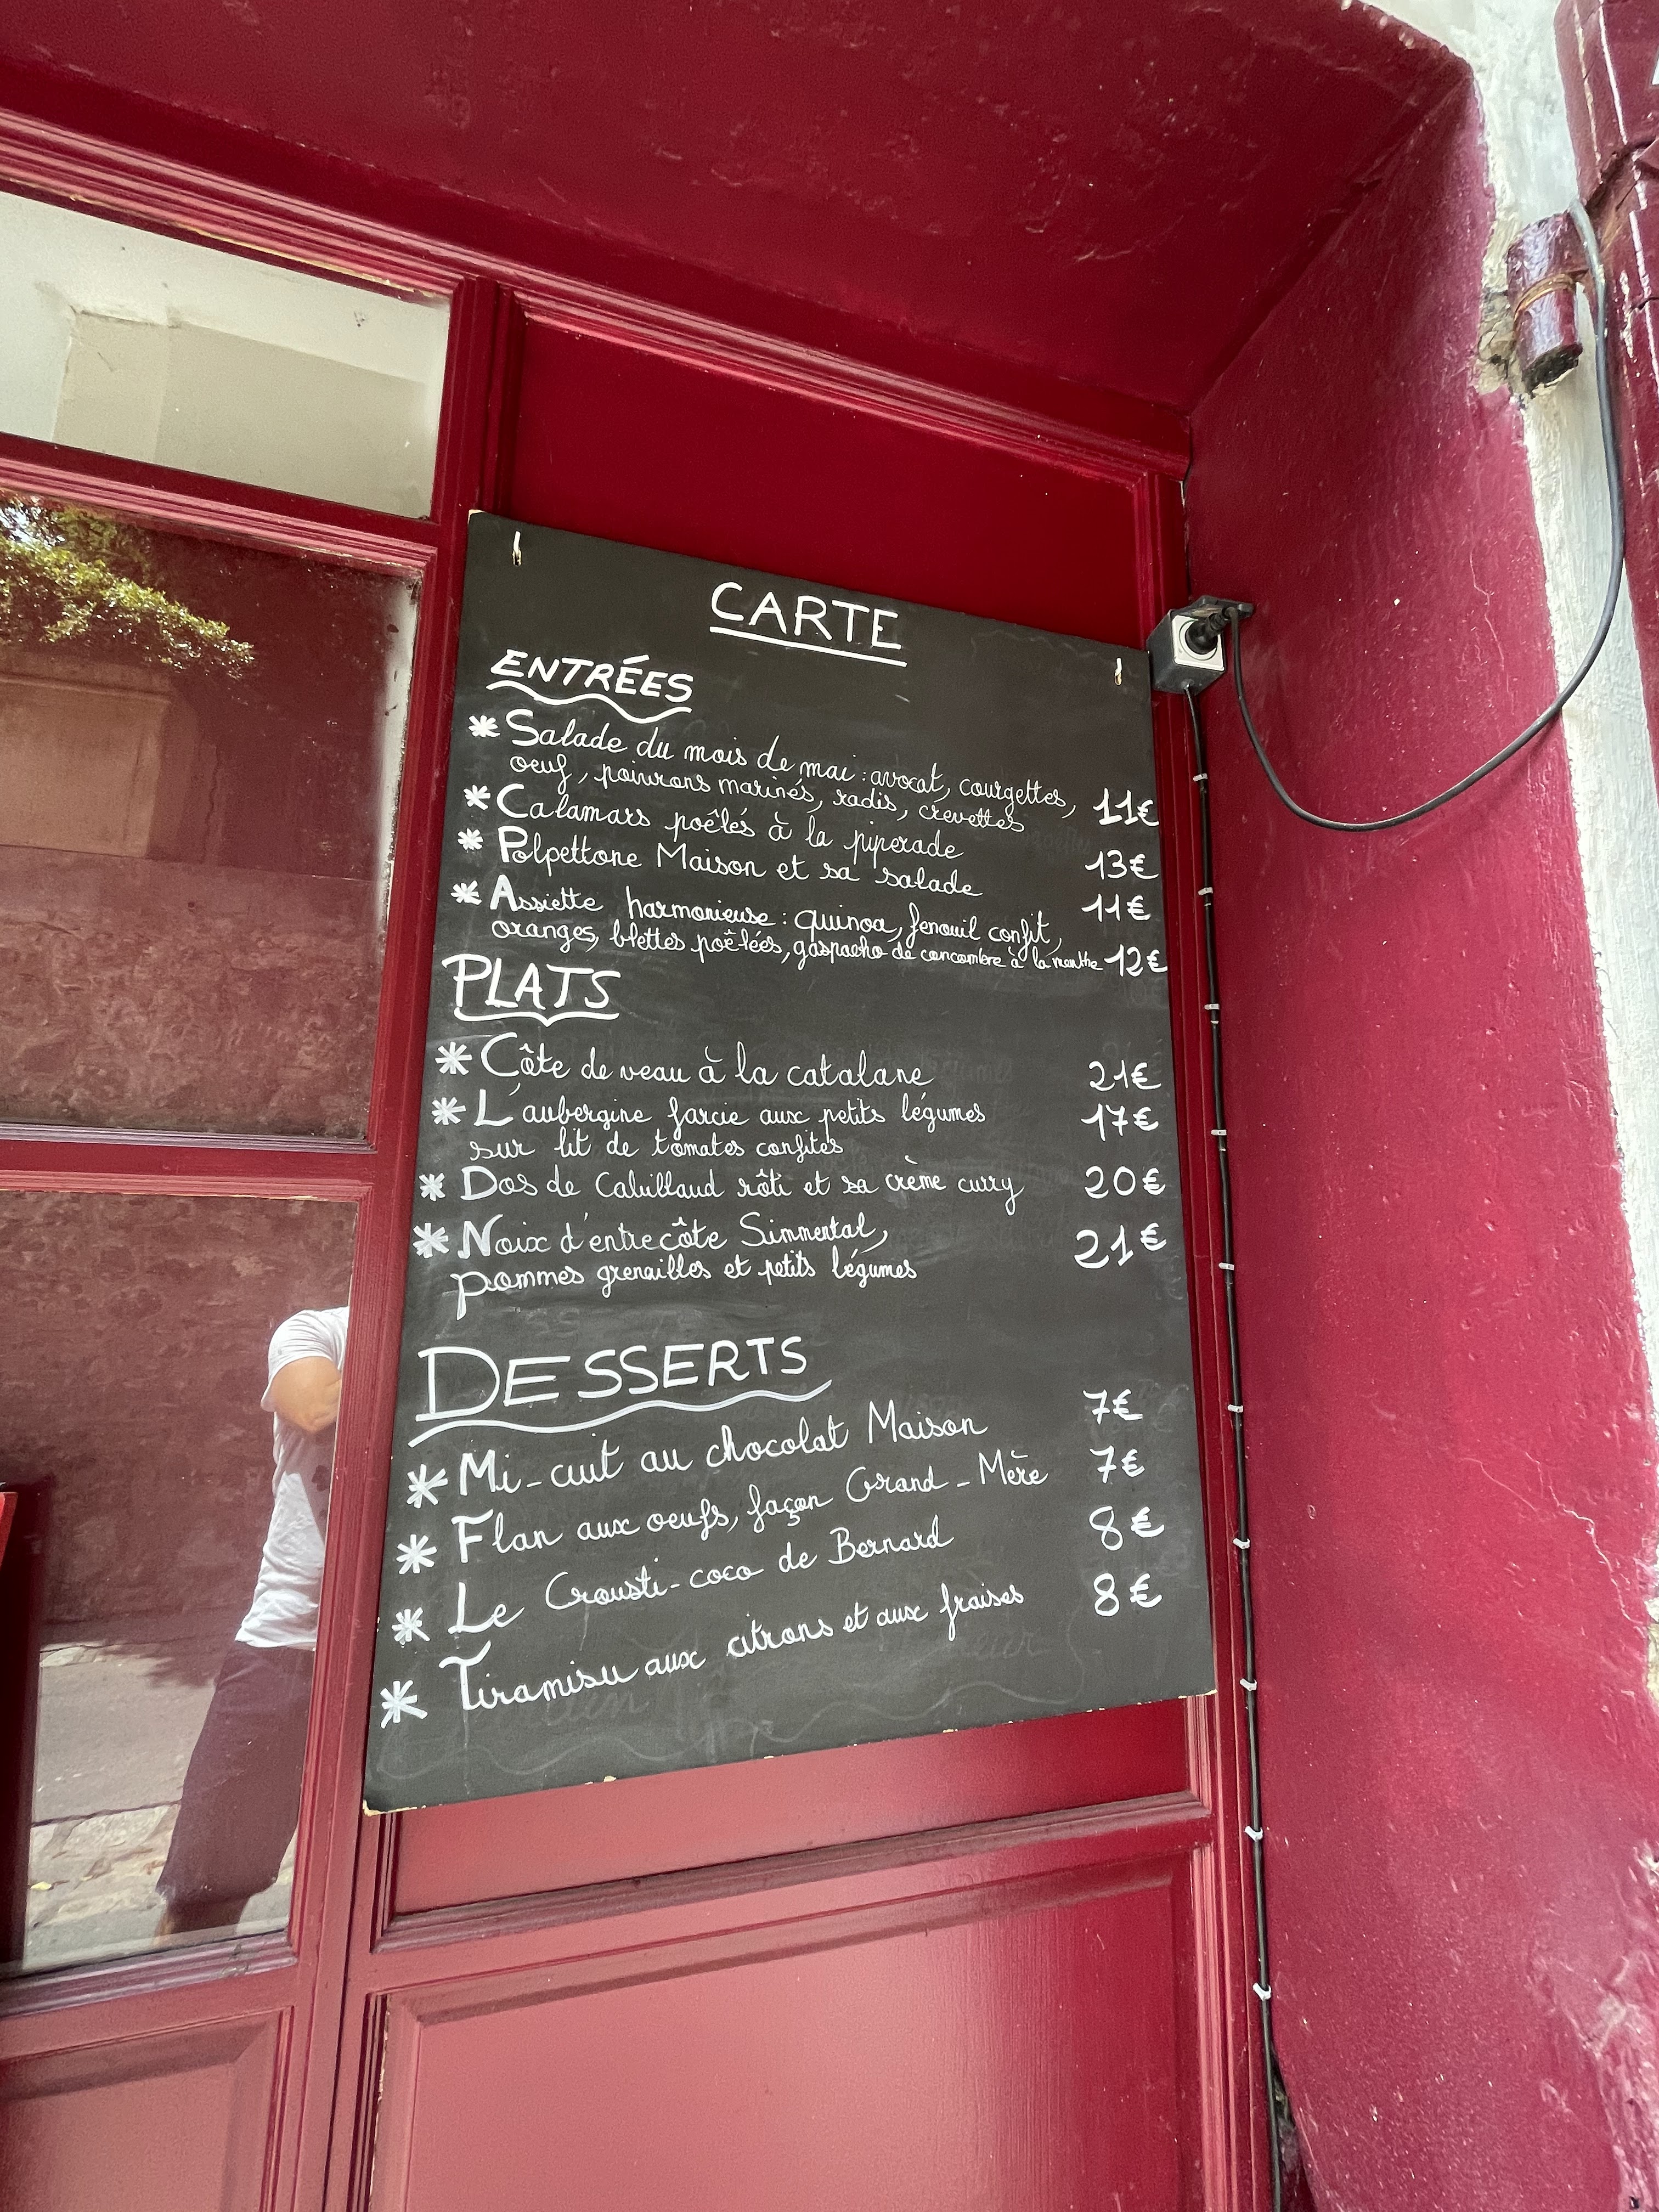 CARTE
ENTRÉES
* Salade du mois de mai : avocat, courgettes,
oeuf, poivrons marinés, radis, crevettes 11€
* Calamars poêlés à la piperade 13€
* Polpettone Maison et sa salade 11€
* Assiette harmonieuse : quinoa, fenouil confit,
oranges, blettes poêlées, gaspacho de concombre à la menthe 12€
PLATS
* Côte de veau à la catalane 21€
* L'aubergine farcie aux petits légumes 17€
sur lit de tomates confites
* Dos de Cabillaud rôti et sa crème curry 20€
* Noix d'entrecôte Simmental, 21€
pommes grenailles et petits légumes
DESSERTS
* Mi-cuit au chocolat Maison 7€
* Flan aux oeufs, façon Grand-Mère 7€
* Le Crousti-coco de Bernard 8€
* Tiramisu aux citrons et aux fraises 8€